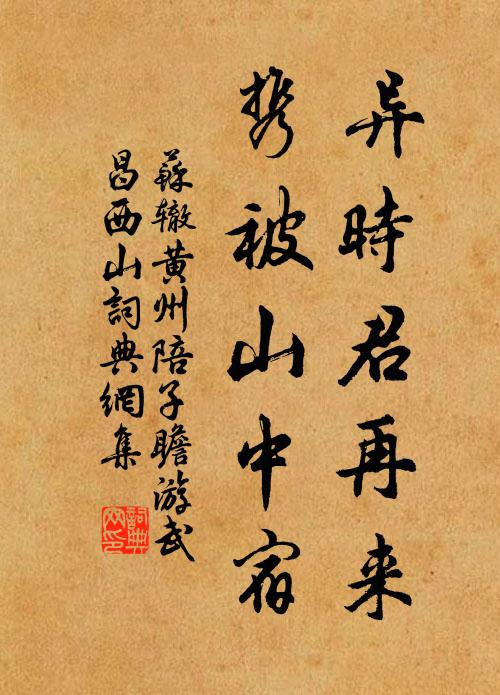 异時君再来
携被山中宿
蘇辙黄州陪子瞻游武
昌西山詞典網集